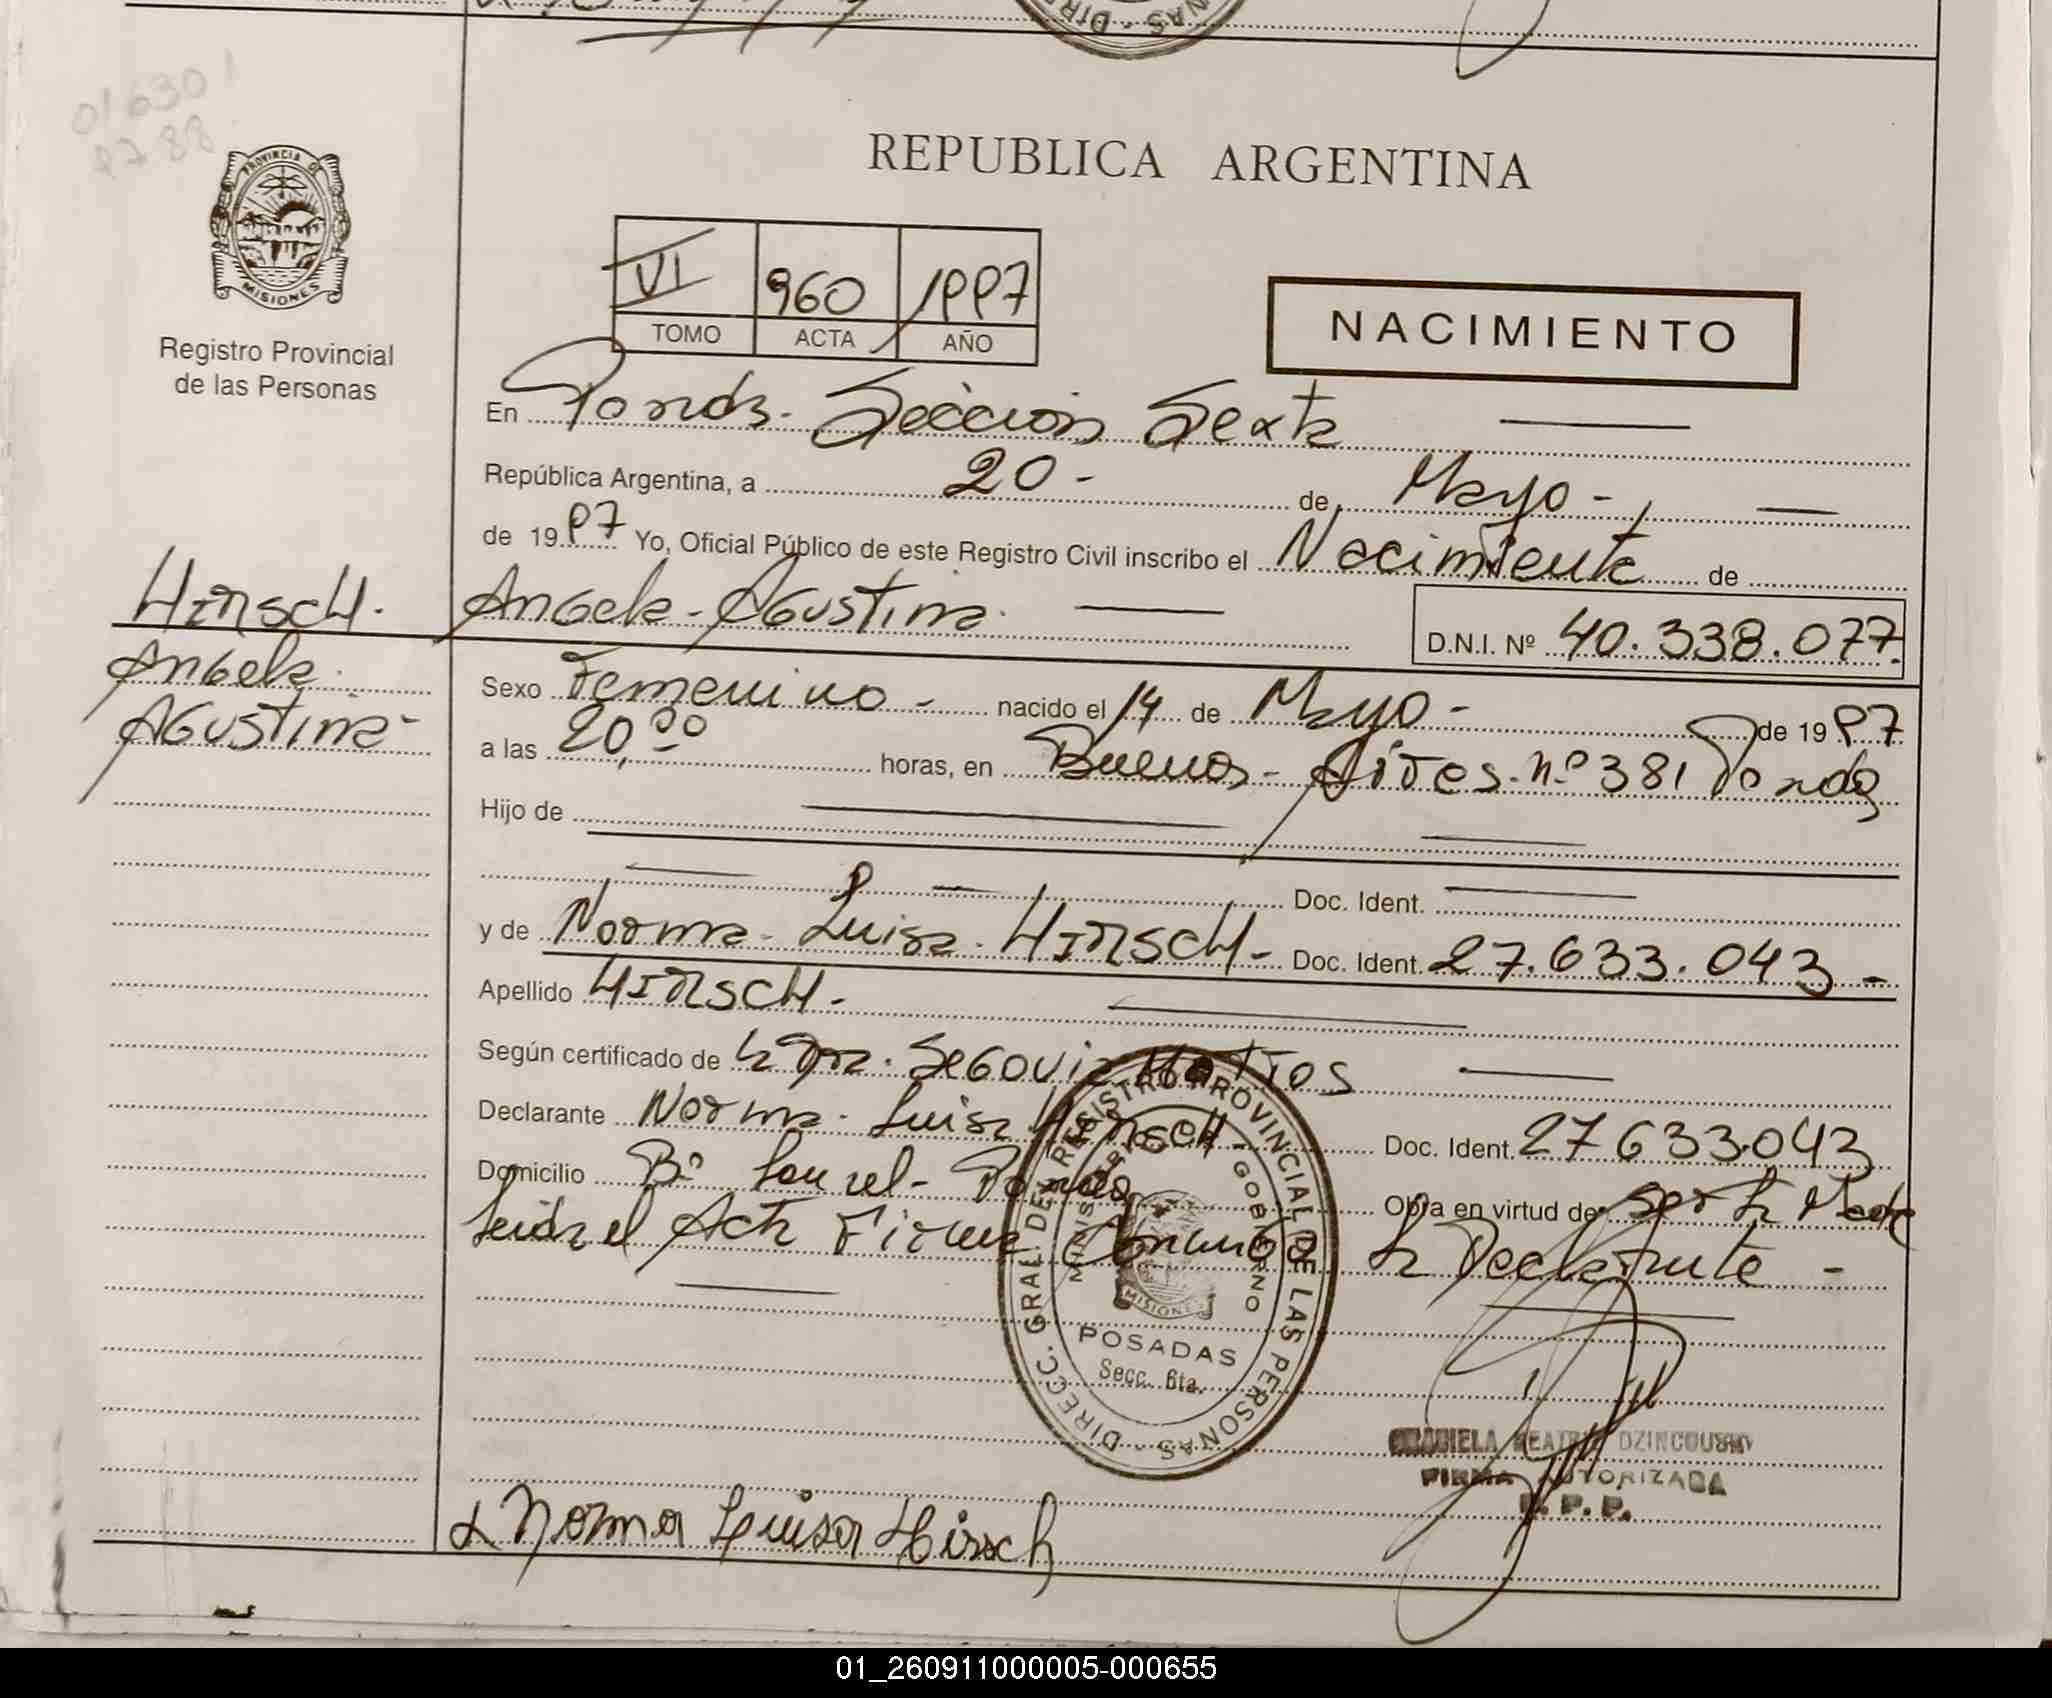 016301
8788
PROVINCIA DE
MISIONES
Registro Provincial
de las Personas
REPUBLICA ARGENTINA
VI 960 1997
TOMO ACTA AÑO
NACIMIENTO
En Posadas. Sección Sexta
República Argentina, a 20 - de Mayo -
de 1997 Yo, Oficial Público de este Registro Civil inscribo el Nacimiento de
HIRSCH. Angela - Agustina.
D.N.I. Nº 40.338.077.
Angela
Agustina -
Sexo Femenino - nacido el 14 de Mayo - de 1997
a las 20,00 horas, en Buenos - Aires. nº 381 Posadas
Hijo de
Doc. Ident.
y de Norma - Luisa - HIRSCH - Doc. Ident. 27.633.043 -
Apellido HIRSCH -
Según certificado de la Dra. Segovia
Declarante Norma - Luisa Hirsch Doc. Ident. 27633.043
Domicilio Bº Laurel - Posadas Obra en virtud de ser la Madre
Leida el Acta Firma la Declarante -
DIRECC. GRAL. DEL REGISTRO PROVINCIAL DE LAS PERSONAS
MINISTERIO DE GOBIERNO
MISIONES
POSADAS
Secc. 6ta.
GRACIELA BEATRIZ DZINCOUSKY
FIRMA AUTORIZADA
R.P.P.
x Norma Luisa Hirsch
01_260911000005-000655